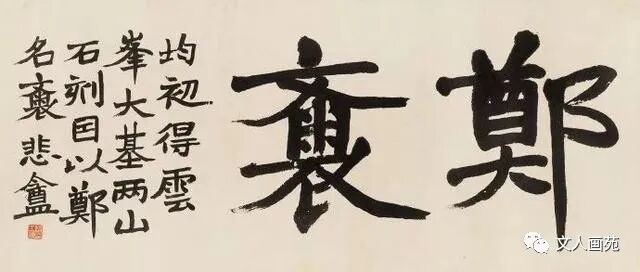 鄭齋
均初得雲
峯大基两山
石刻囙以鄭
名齋悲盦
文人画苑